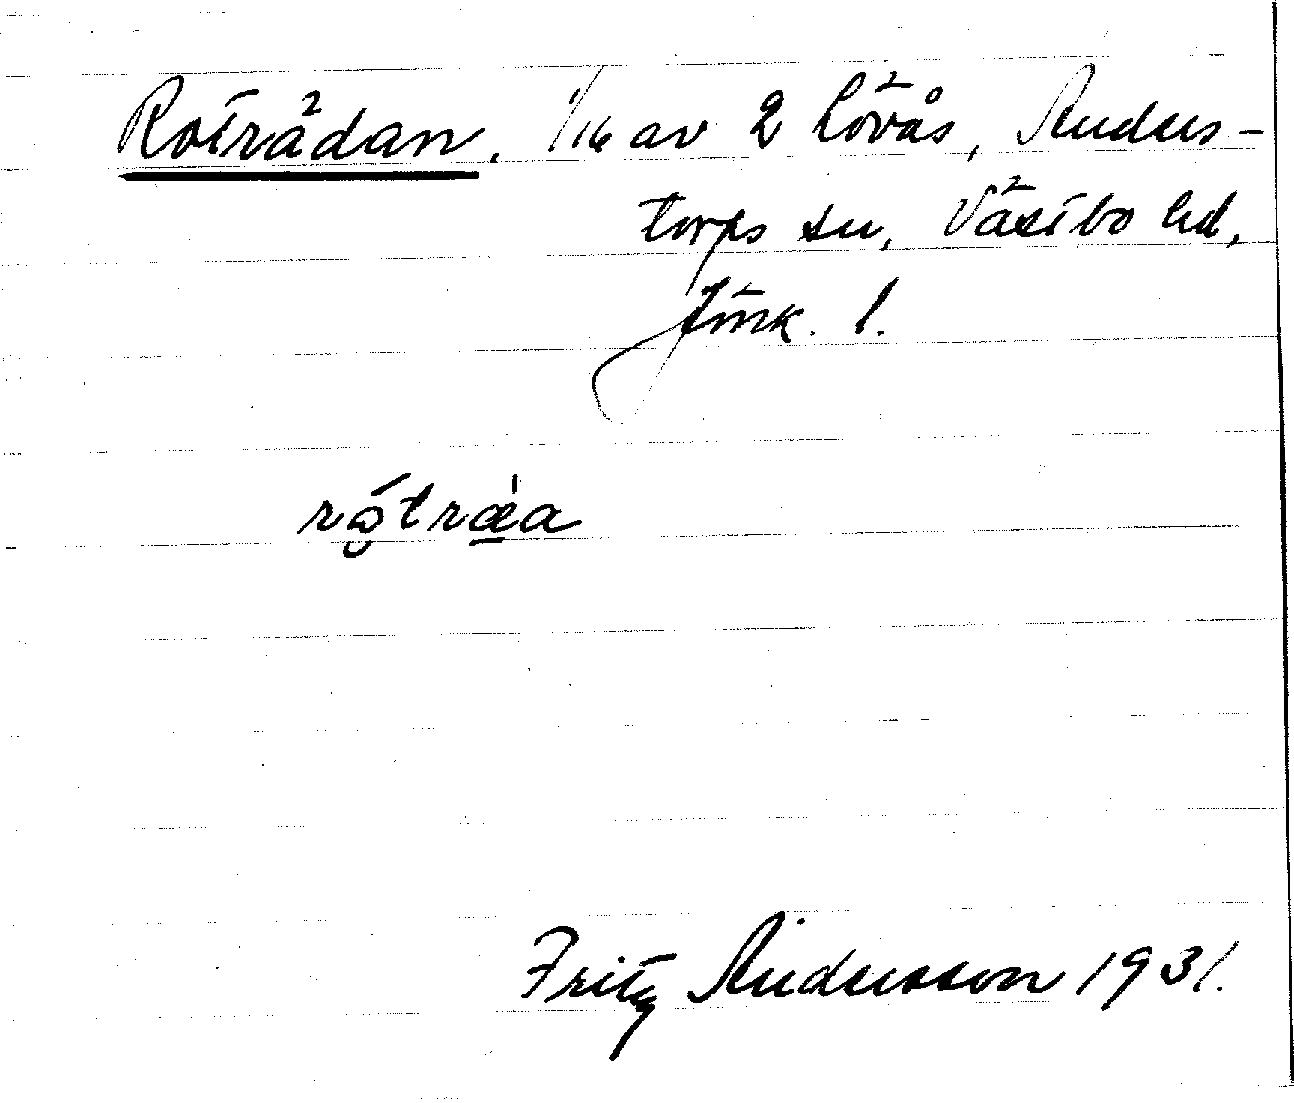 Roträdan. 1/16 av 2 Lövås, Anders-
torps sn, Västbo hd,
Jönk. l.
rǫ́træ̀a
Fritz Andersson 1931.